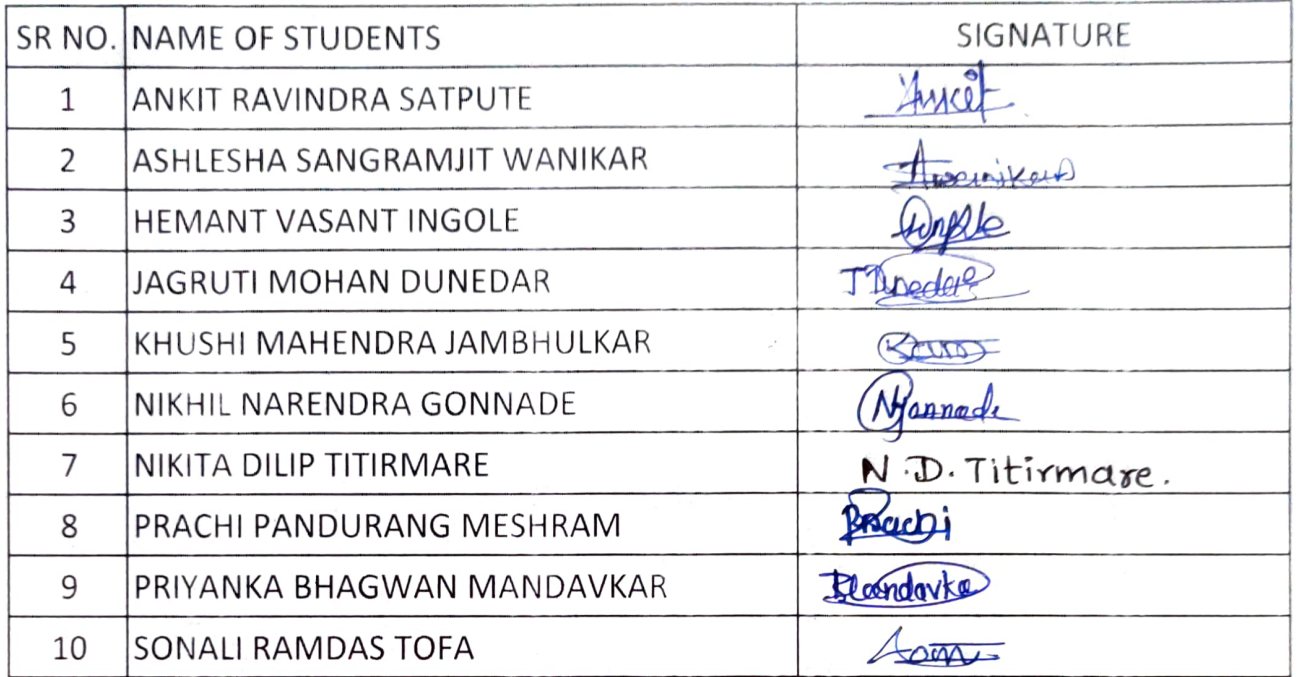 SR NO. NAME OF STUDENTS SIGNATURE
1 ANKIT RAVINDRA SATPUTE Ankit
2 ASHLESHA SANGRAMJIT WANIKAR Awanikar
3 HEMANT VASANT INGOLE
4 JAGRUTI MOHAN DUNEDAR
5 KHUSHI MAHENDRA JAMBHULKAR
6 NIKHIL NARENDRA GONNADE
7 NIKITA DILIP TITIRMARE N.D. Titirmare.
8 PRACHI PANDURANG MESHRAM Prachi
9 PRIYANKA BHAGWAN MANDAVKAR
10 SONALI RAMDAS TOFA